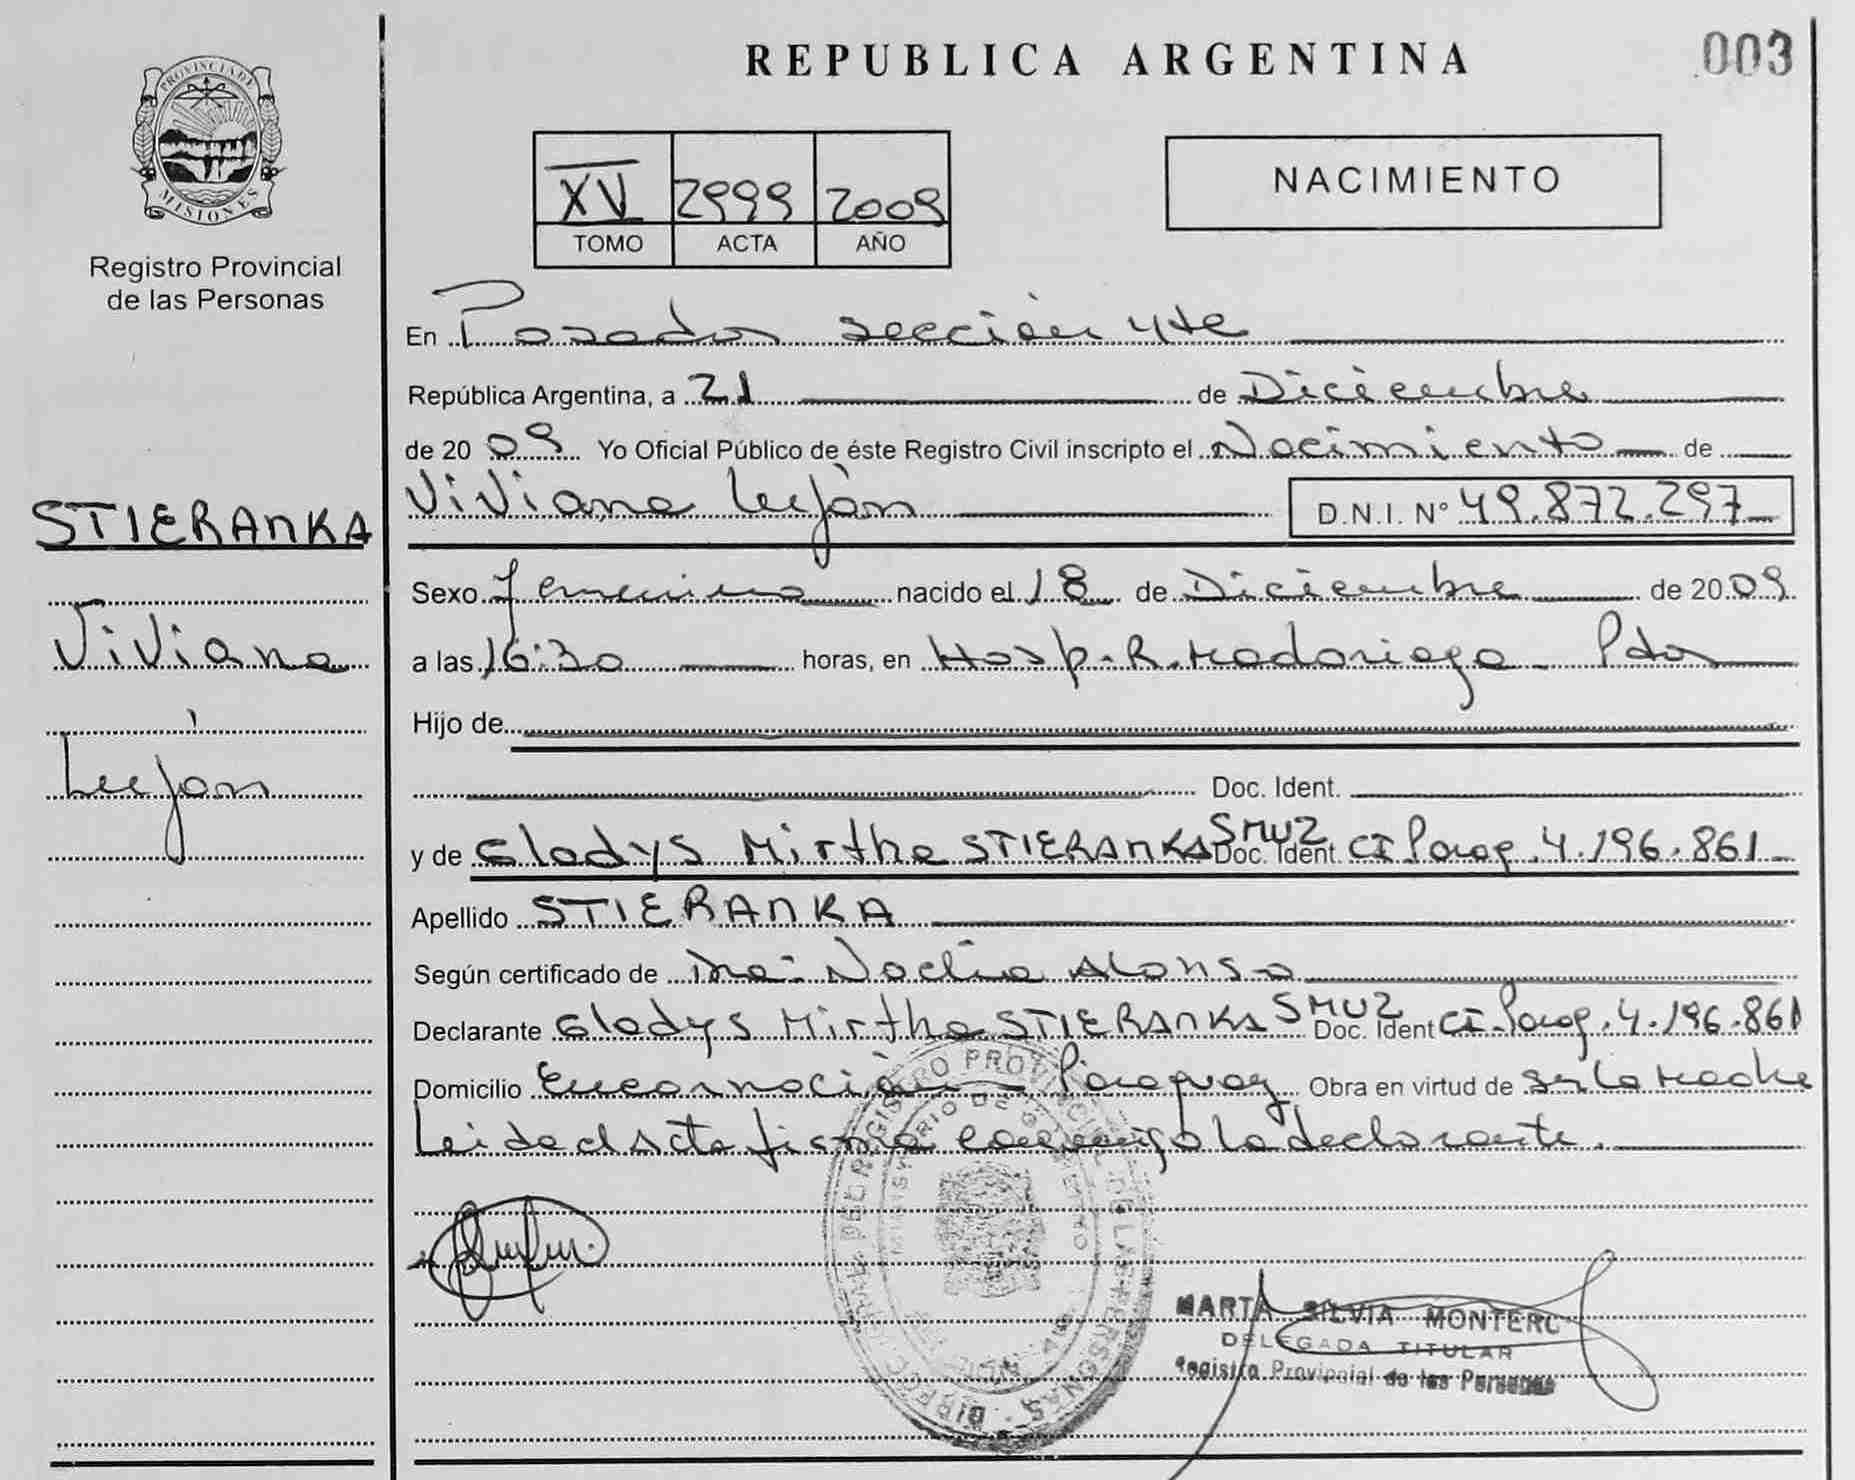 REPUBLICA ARGENTINA
003
PROVINCIA DE MISIONES
Registro Provincial
de las Personas
XV 2999 2009
TOMO ACTA AÑO
NACIMIENTO
En Posadas sección 4te
República Argentina, a 21 de Diciembre
de 2009 Yo Oficial Público de éste Registro Civil inscripto el Nacimiento de
Viviana Luján D.N.I. N° 49.872.297
STIERANKA
Viviana
Luján
Sexo femenino nacido el 18 de Diciembre de 2009
a las 16:30 horas, en Hosp. R. Madariaga - Pdas
Hijo de
Doc. Ident.
y de Gladys Mirtha STIERANKA SMUZ Doc. Ident CI Parag. 4.196.861
Apellido STIERANKA
Según certificado de Dra: Noelia Alonso
Declarante Gladys Mirtha STIERANKA SMUZ Doc. Ident CI. Parag. 4.196.861
Domicilio Encarnación - Paraguay Obra en virtud de ser la madre
Leida el Acta firma conmigo la declarante.
MARTA SILVIA MONTERO
DELEGADA TITULAR
Registro Provincial de las Personas